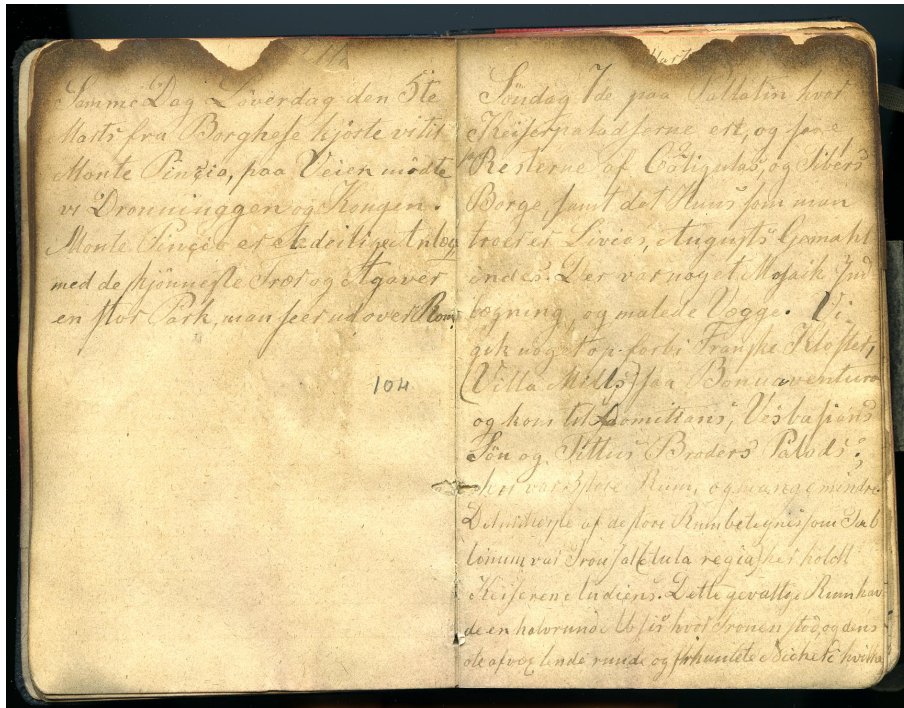 Samme Dag Löverdag den 5te
Marts fra Borghese kjörte vi til
Monte Pinzio, paa Veien mödte
vi Dronninggen og Kongen.
Monte Pinzio er et deiligt Anlæg
med de skjönneste Træer og Agaver
en stor Park, man seer ud over Rom.
104
Söndag 7de paa Pallatin hvor
Keiserpaladserne ere, og saae
Resterne af Caligulas, og Tibers
Borge, samt det Huus som man
troer er Livias, Augusts Gemahl
indes. Der var noget Mosaik Ind
lægning, og malede Vægge. Vi
gik noget op forbi Franske Kloster,
(Villa Mills) paa Bonuaventura
og kom til Domitians, Vesbasians
Sön og Tittus Broders Palads,
hvor var 3 store Rum, og mange mindre.
Det af de store Rum betegnes som Tab
linum var Tronsal (Aula regia) her holdt
Keiserene Audiens. Dette gevaltige Rum hav
de en halvrunde Absis hvor Tronen stod, og dens
afvexlende runde og firkantete Nicher i hvilke